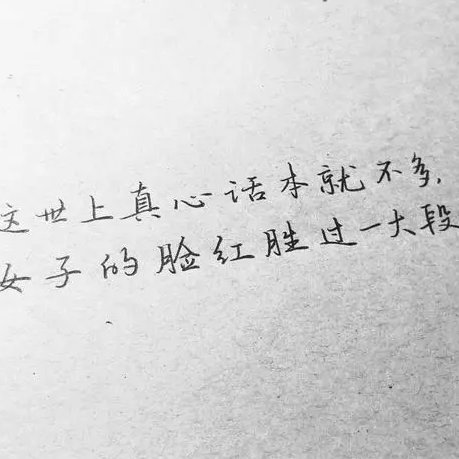 这世上真心话本就不多,
女子的脸红胜过一大段